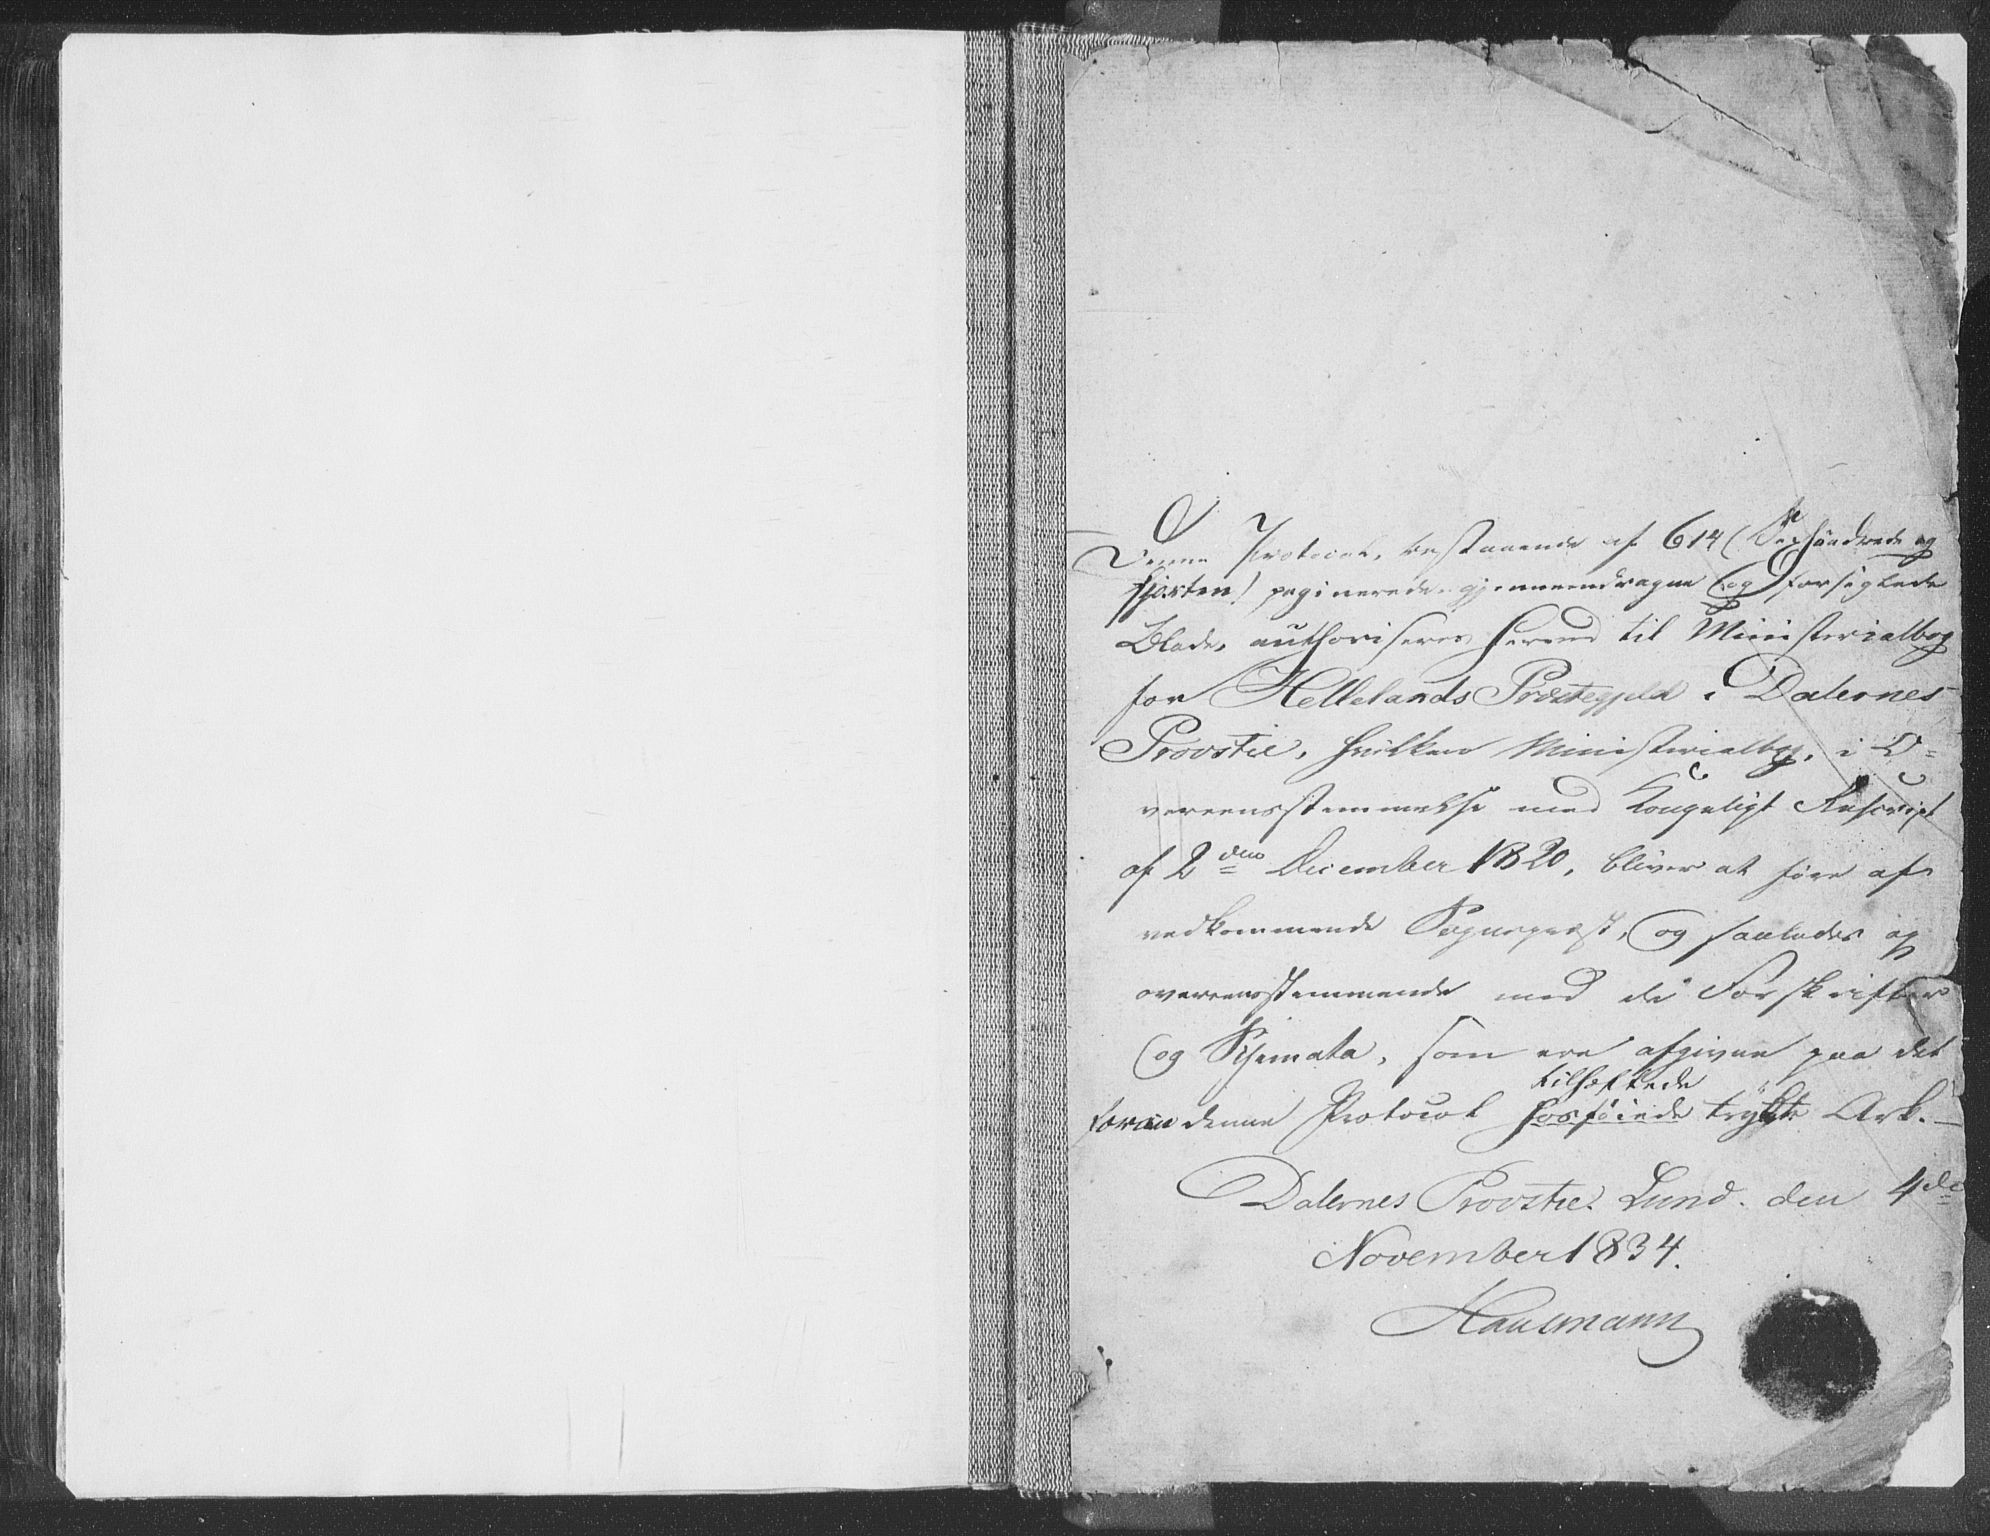 Denne Protocol, bestaaende af 614 (Sexhundrede og
fjorten) paginerede, gjennemdragne og forseglede
Blade, authoriseres herved til Ministerialbog
for Hellelands Præstegjeld i Dalernes
Provstie, hvilken Ministerialbog, i O=
vereensstemmelse med Kongeligt Rescript
af 2den December 1820, bliver at føre af
vedkommende Sognepræst, og saaledes og
overeensstemmende med de Forskrifter
og Schemata, som ere afgivne paa det
tilhæftede
foran denne Protocol hosføiede trykte Ark.—
Dalernes Provstie. Lund. den 4de
November 1834.